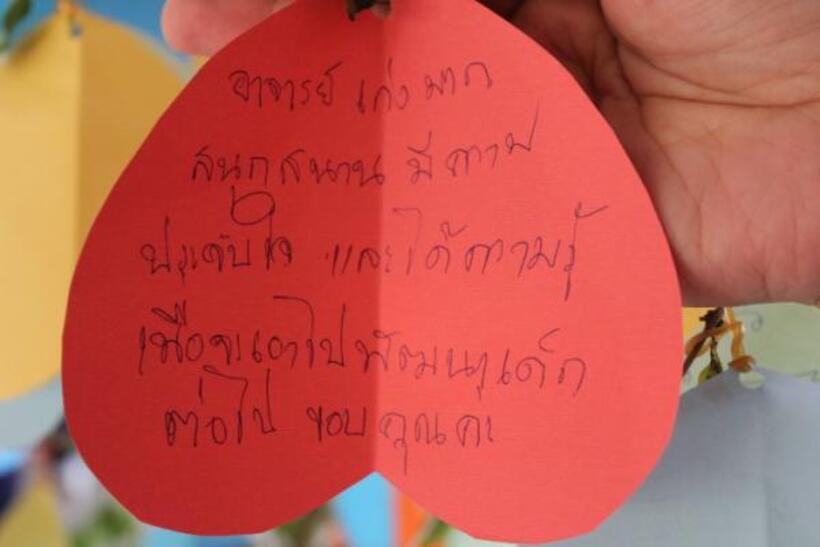 อาจารย์ เก่ง มาก
สนุกสนาน มีความ
ประทับใจ และได้ความรู้
เพื่อจะเอาไปพัฒนาเด็ก
ต่อไป ขอบคุณคะ